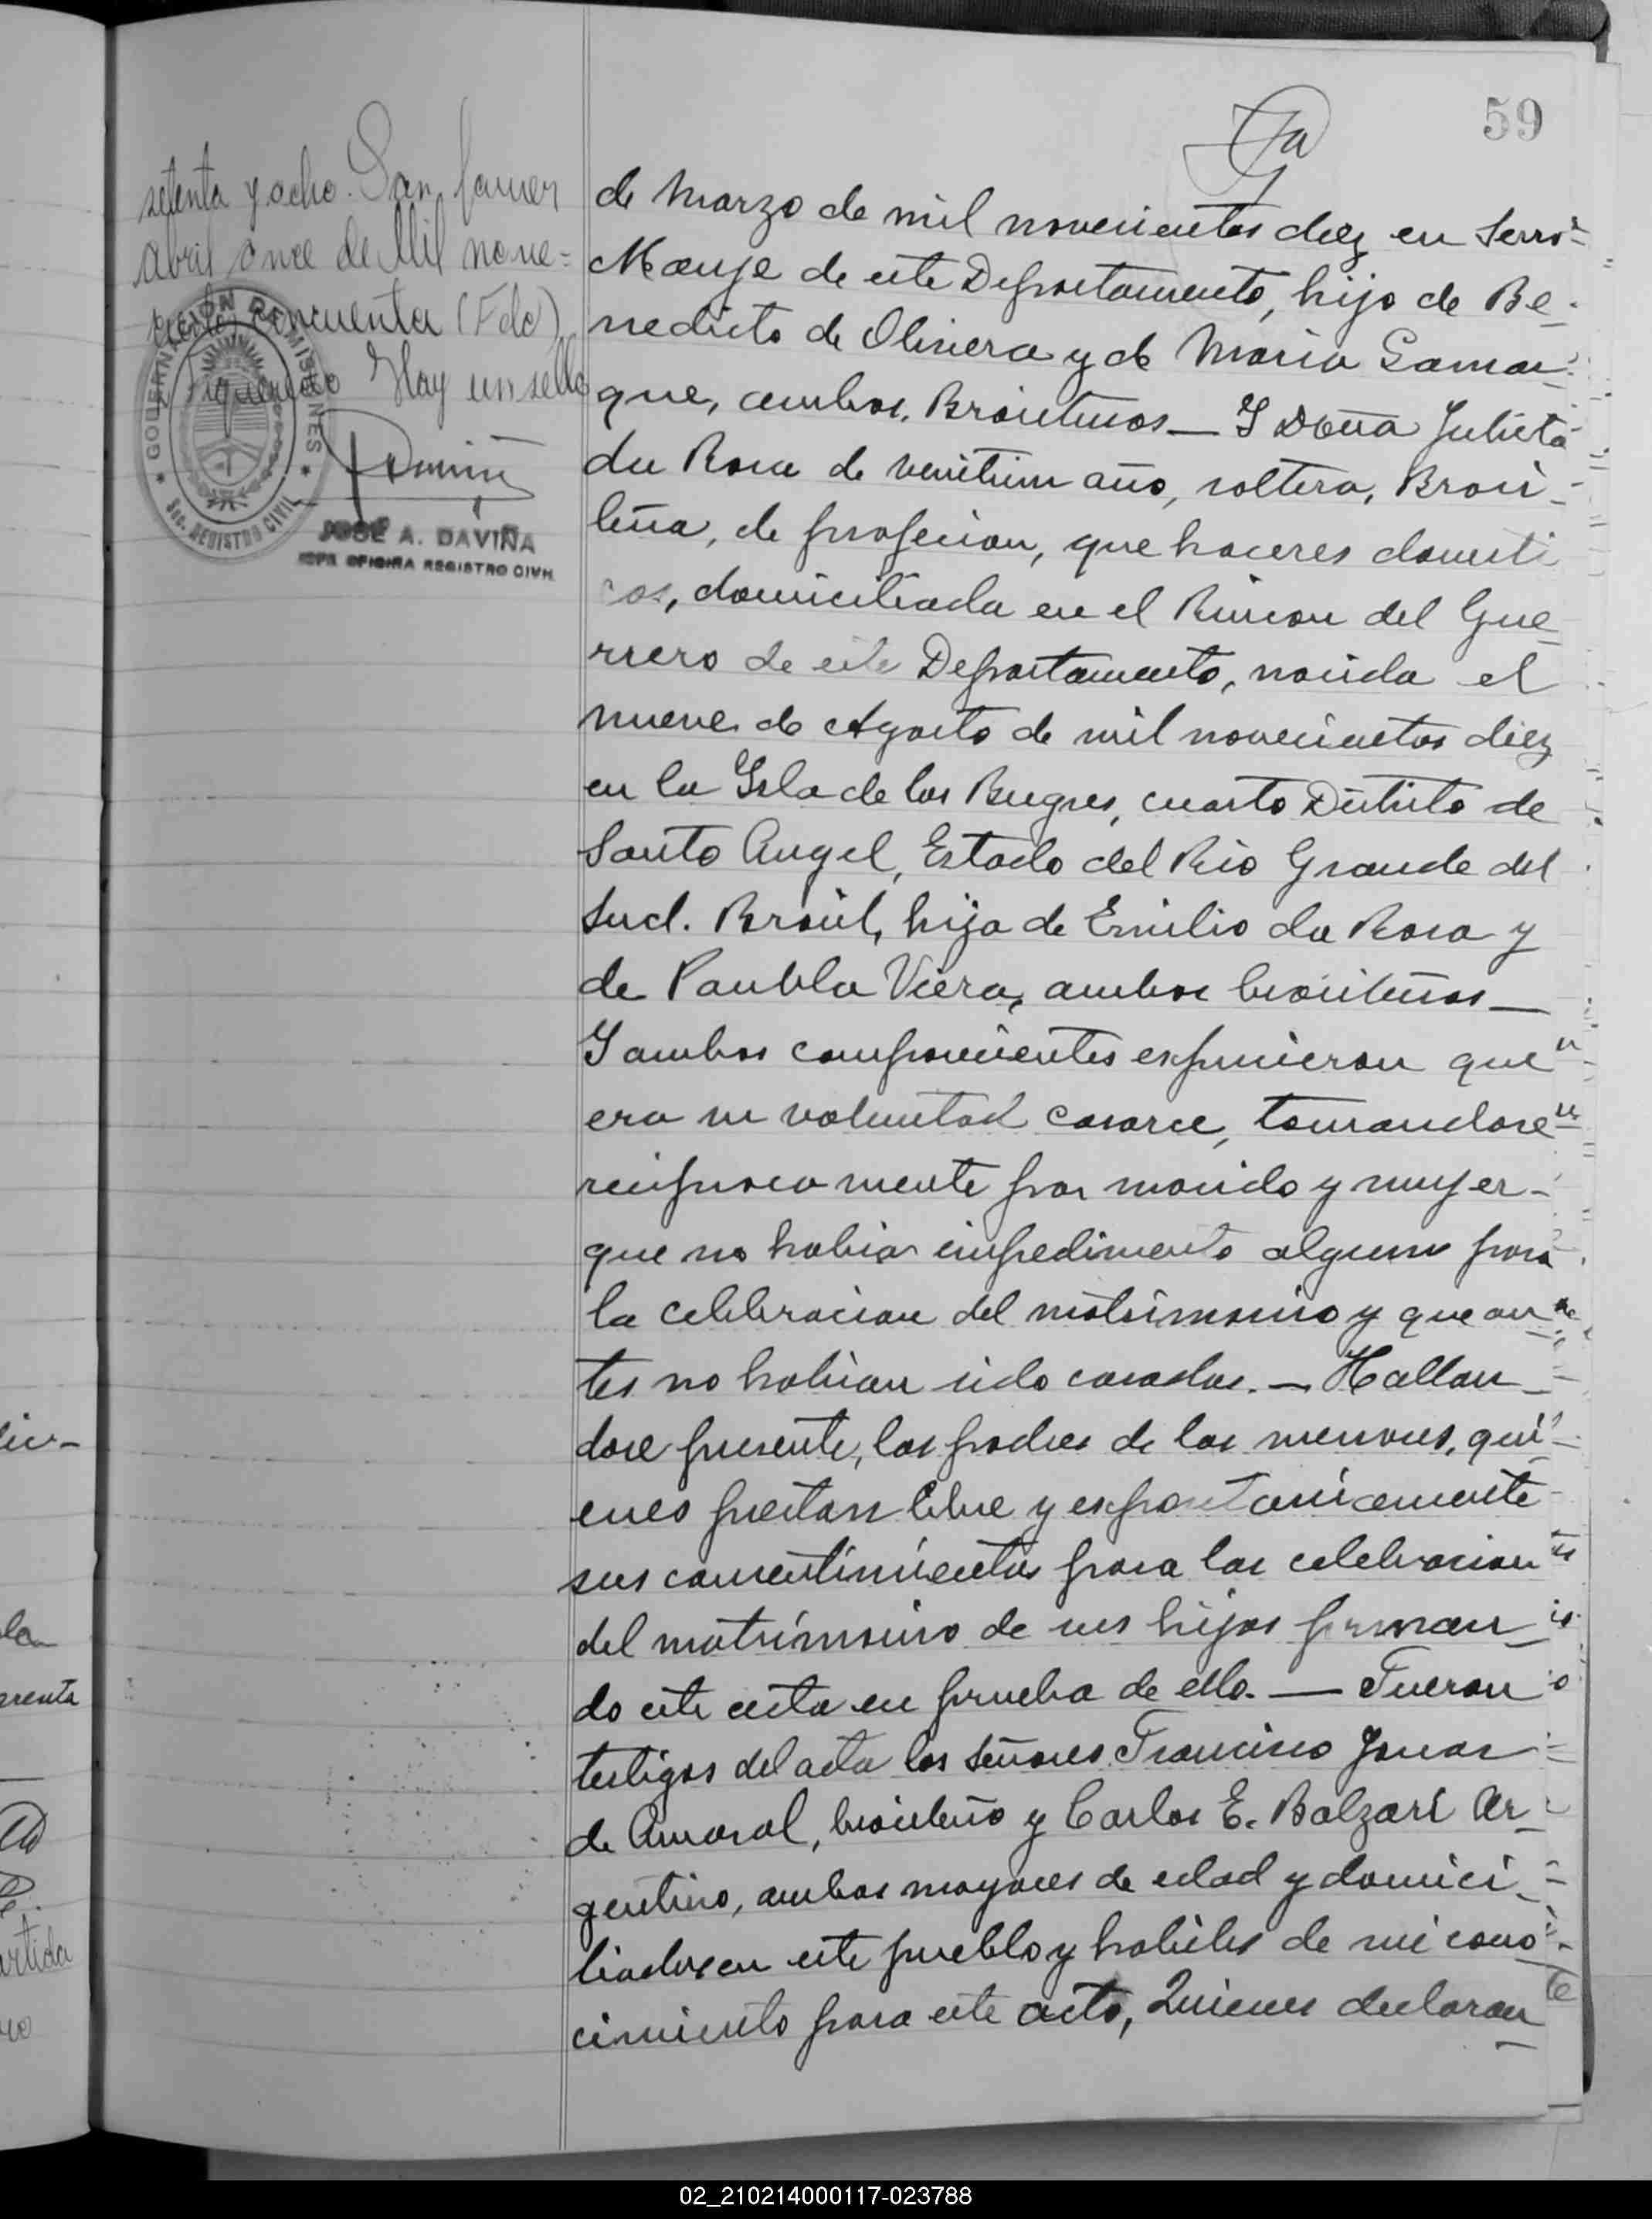 59
setenta y ocho. San Javier
abril once de Mil nove=
cientos cincuenta (Fdo)
Figueredo Hay un sello
GOBERNACIÓN DE MISIONES
SEC. REGISTRO CIVIL
JOSÉ A. DAVIÑA
JEFE OFICINA REGISTRO CIVIL
de Marzo de mil novecientos diez en Serro
Monje de este Departamento, hijo de Be-
nedicto de Olivera y de Maria Gamar
que, ambos, Brasileños— Y Doña Julieta
da Rosa de veintiun año, soltera, Brasi-
leña, de profecion, que haceres domesti
cos, domiciliada en el Rincon del Gue_
rrero de este Departamento, nacida el
nueve de Agosto de mil novecientos diez
en la Ysla de los Bugres, cuarto Distrito de
Santo Angel, Estado del Rio Grande del
Sud. Brasil, hija de Emilio da Rosa y
de Paubla Viera, ambos brasileños—
Y ambos componientes expusieron que
era su voluntad casarce, tomandose
resiprocamente por marido y mujer-
que no habia impedimento alguno para
la celebracion del matrimonio y que an
tes no habian sido casados. — Hallan_
dose presente, los padres de los menores, qui_
enes prestan libre y espontanicamente
sus consentimientos para la celebracion
del matrimonio de sus hijos firman_
do este acta en prueba de ello. — Fueron
testigos del acta los Señores Francisco Jonas
de Amaral, brasileño y Carlos E. Balzari Ar_
gentino, ambos mayores de edad y domici_
liados en este pueblo y habiles de mi cono_
cimiento para este acto, Quienes declaran
02_210214000117-023788